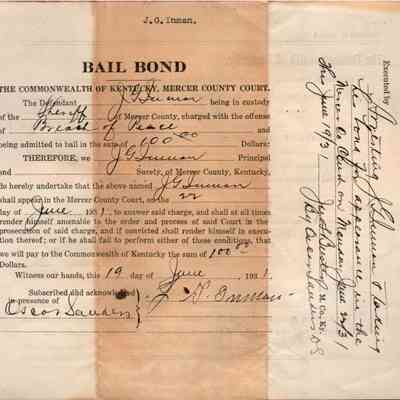 J.G. Inman.
BAIL BOND
THE COMMONWEALTH OF KENTUCKY, MERCER COUNTY COURT.
The Defendant J G Inman being in custody
of the Sheriff of Mercer County, charged with the offense
of Breach of Peace and
being admitted to bail in the sum of 100.00 Dollars:
THEREFORE, we J G Inman Principal
and Surety, of Mercer County, Kentucky,
do hereby undertake that the above named J G Inman
shall appear in the Mercer County Court, on the 22
day of June 1931, to answer said charge, and shall at all times
render himself amenable to the order and process of said Court in the
prosecution of said charge, and if convicted shall render himself in execu-
tion thereof; or if he shall fail to perform either of those conditions, that
we will pay to the Commonwealth of Kentucky the sum of 100.00
Dollars.
Witness our hands, this 19 day of June, 1931
Subscribed and acknowledged
in presence of J. G. Inman
Oscar Sanders
Executed by
J G Inman & taking
his bond for appearance in the
Mercer Co Court on Monday June 22/31
This June 19/31
M. Co. Ky.
By Oscar Sanders D S